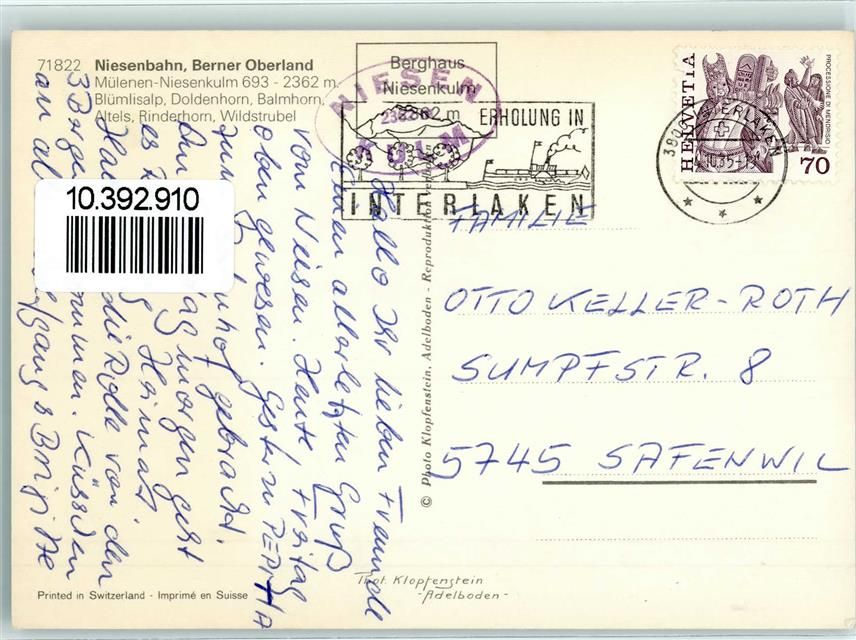 71822 Niesenbahn, Berner Oberland
Mülenen-Niesenkulm 693 - 2362 m
Blümlisalp, Doldenhorn, Balmhorn,
Altels, Rinderhorn, Wildstrubel
Berghaus
Niesenkulm
2362 m
NIESEN
KULM
ERHOLUNG IN
INTERLAKEN
3800 INTERLAKEN
HELVETIA
PROCESSIONE DI MENDRISIO
70
10.392.910
Hallo Ihr lieben Freunde
Einen allerletzten Gruß
vom Niesen. Heute, Freitag
oben gewesen. Gestern PEPI + A
zum Bahnhof gebracht.
morgen geht
es Heimat
die Rolle von den
3 Bergen Küssden
an Wolfgang & Brigitte
© Photo Klopfenstein, Adelboden - Reproduktion verboten
FAMILIE
OTTO KELLER-ROTH
SUMPFSTR. 8
5745 SAFENWIL
Phot. Klopfenstein
- Adelboden -
Printed in Switzerland - Imprimé en Suisse